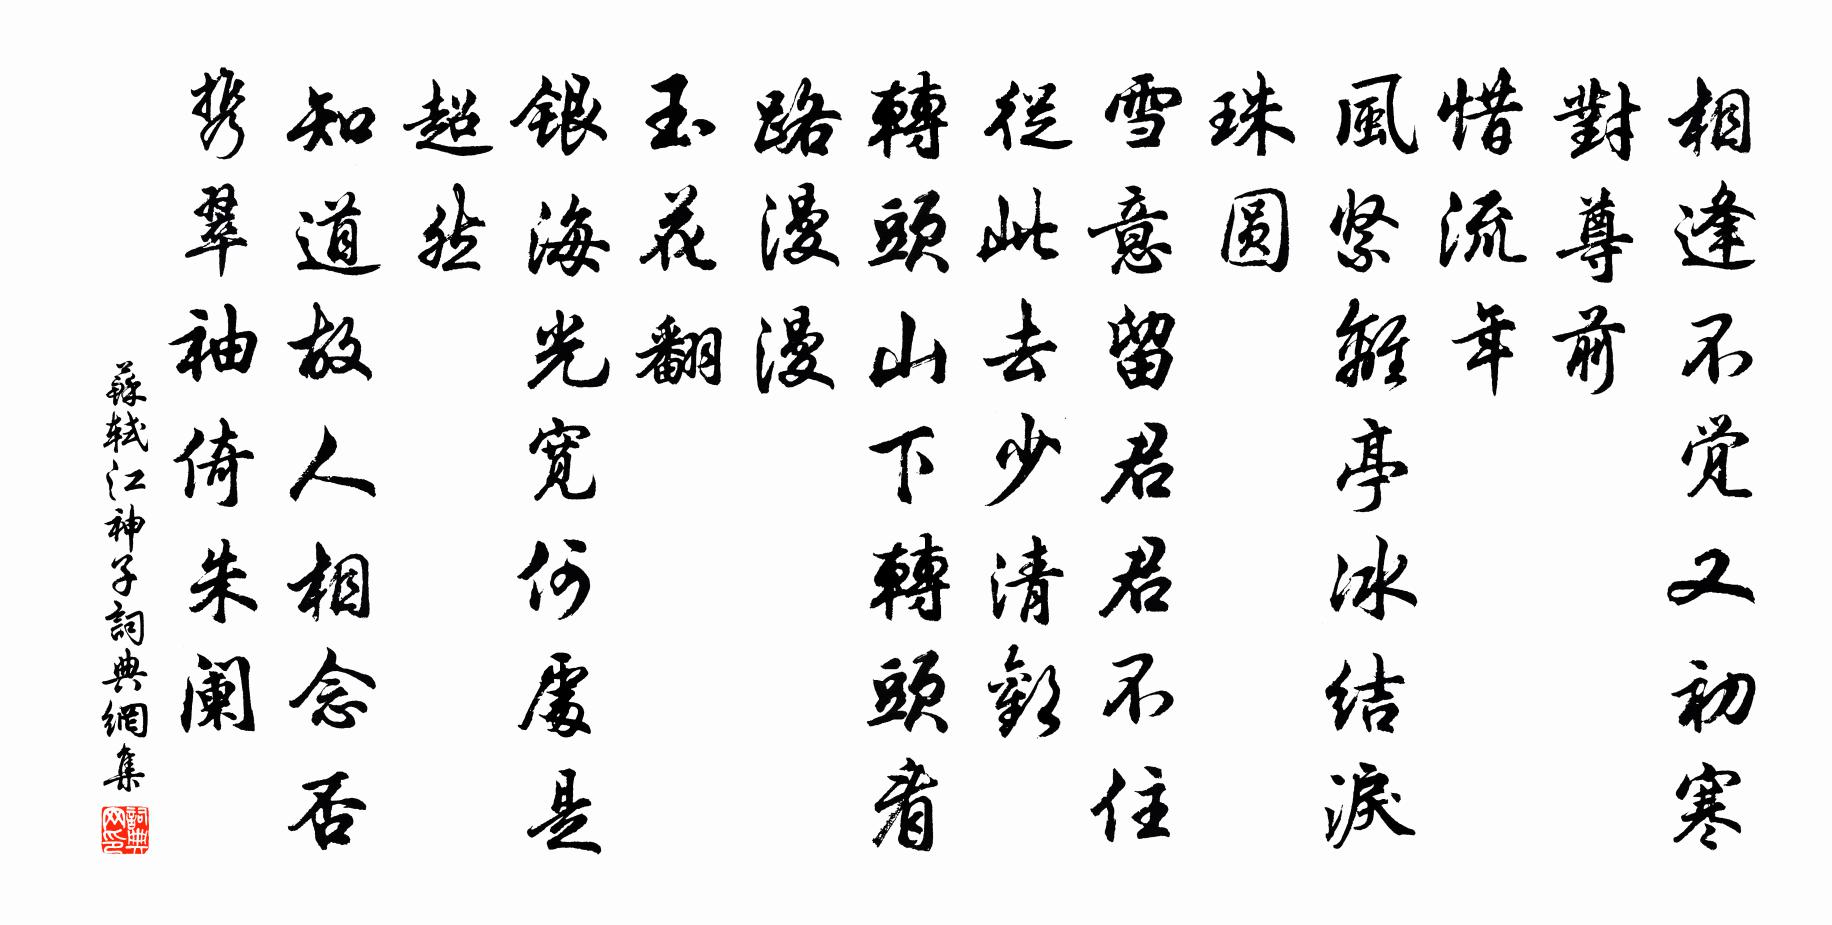 相逢不覚又初寒
對尊前
惜流年
風紧離亭冰结淚
珠圆
雪意留君君不住
從此去少清歡
轉頭山下轉頭看
路漫漫
玉花翻
銀海光宽何處是
超然
知道故人相念否
携翠袖倚朱阑
蘇軾江神子詞典網集
詞典网印